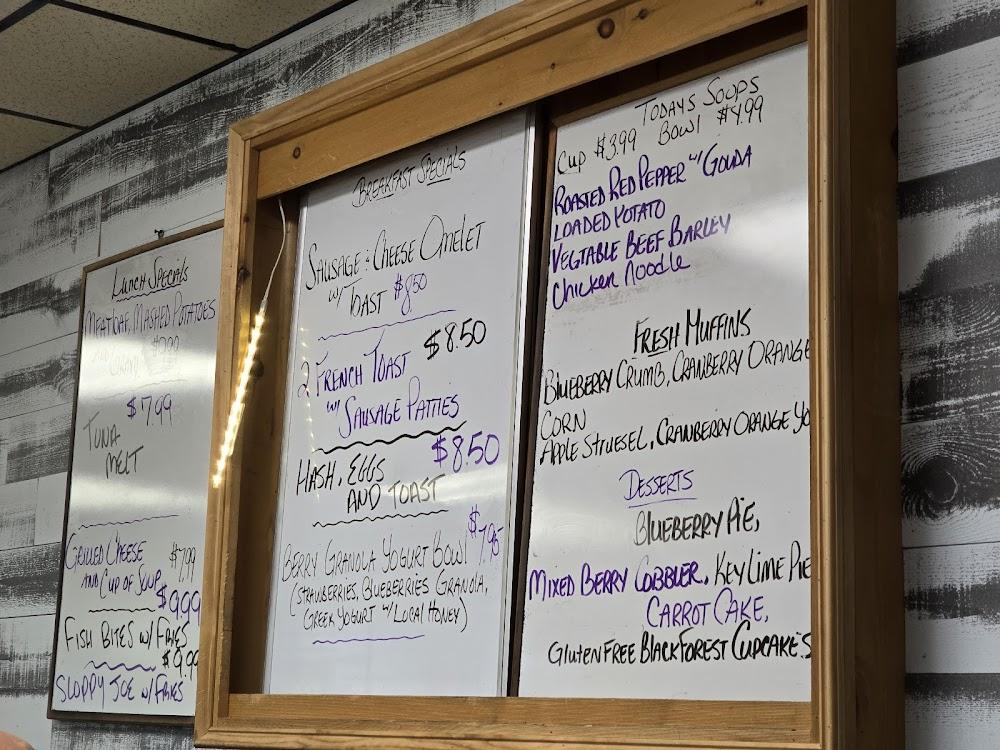 Lunch Specials
Meatloaf, Mashed Potatoes
$7.99
Tuna
Melt
Grilled Cheese $7.99
and Cup of Soup
$9.99
Fish Bites w/ Fries
$9.99
Sloppy Joe w/ Fries
Breakfast Specials
Sausage & Cheese Omelet
w/ Toast $8.50
$8.50
2 French Toast
w/ Sausage Patties
$8.50
Hash, Eggs
and Toast
$7.95
Berry Granola Yogurt Bowl
(Strawberries, Blueberries Granola,
Greek Yogurt w/ Local Honey)
Todays Soups
Cup $3.99 Bowl $4.99
Roasted Red Pepper w/ Gouda
Loaded Potato
Vegtable Beef Barley
Chicken Noodle
Fresh Muffins
Blueberry Crumb, Cranberry Orange
Corn
Apple Struesel, Cranberry Orange Yo
Desserts
Blueberry Pie,
Mixed Berry Cobbler, Key Lime Pie
Carrot Cake,
Gluten Free Black Forest Cupcakes